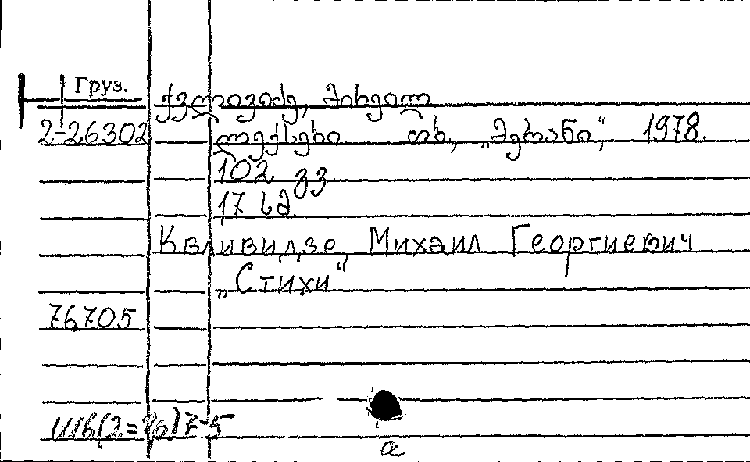 Груз.
ქვლივიძე, მიხეილ
2-26302 ლექსები თბ., „მერანი“, 1978.
102 გვ
17 სმ
Квливидзе, Михаил Георгиевич
„Стихи“
76705
а